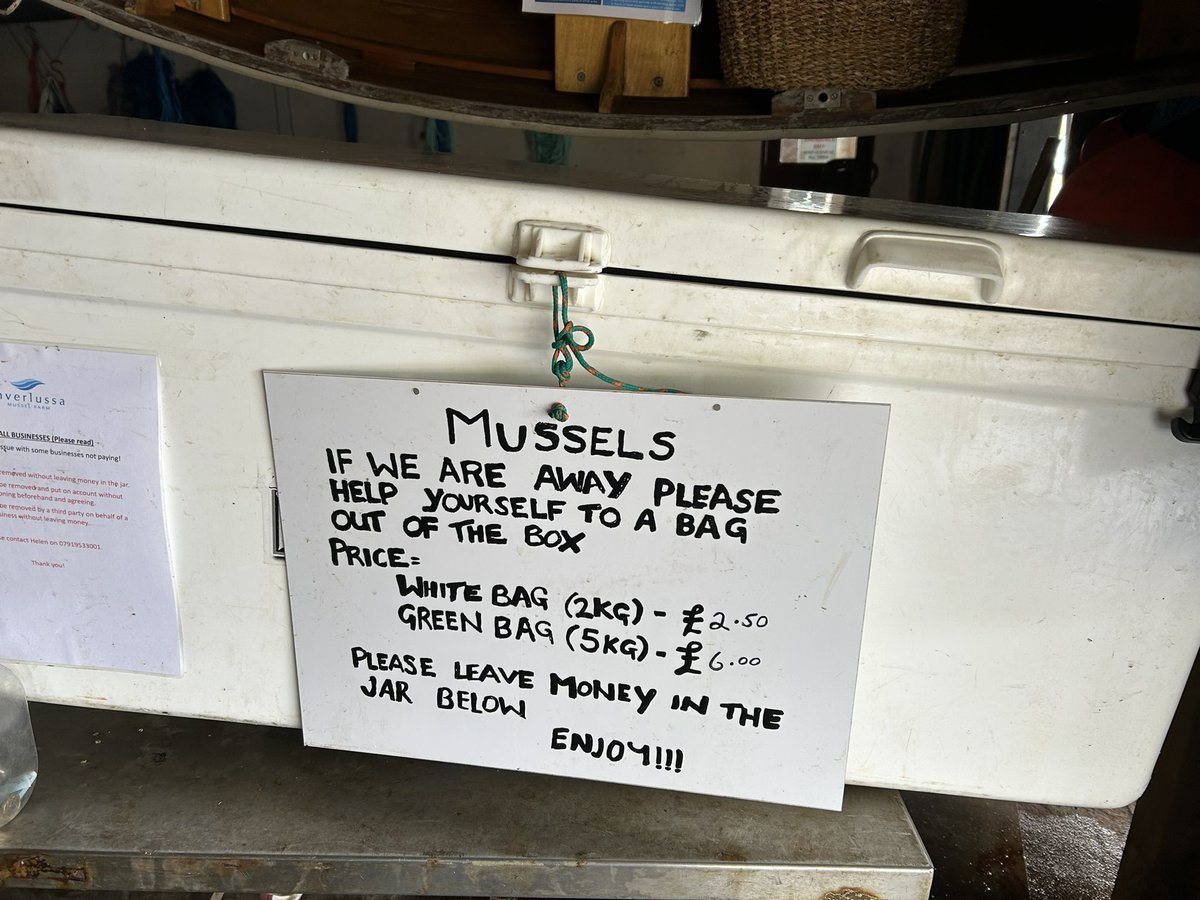 MUSSELS
IF WE ARE AWAY PLEASE
HELP YOURSELF TO A BAG
OUT OF THE BOX
PRICE=
WHITE BAG (2KG) - £2.50
GREEN BAG (5KG) - £6.00
PLEASE LEAVE MONEY IN THE
JAR BELOW
ENJOY!!!
nverlussa
MUSSEL FARM
ALL BUSINESSES (Please read)
sue with some businesses not paying!
removed without leaving money in the jar.
be removed and put on account without
oning beforehand and agreeing.
be removed by a third party on behalf of a
siness without leaving money.
se contact Helen on 07919533001
Thank you!